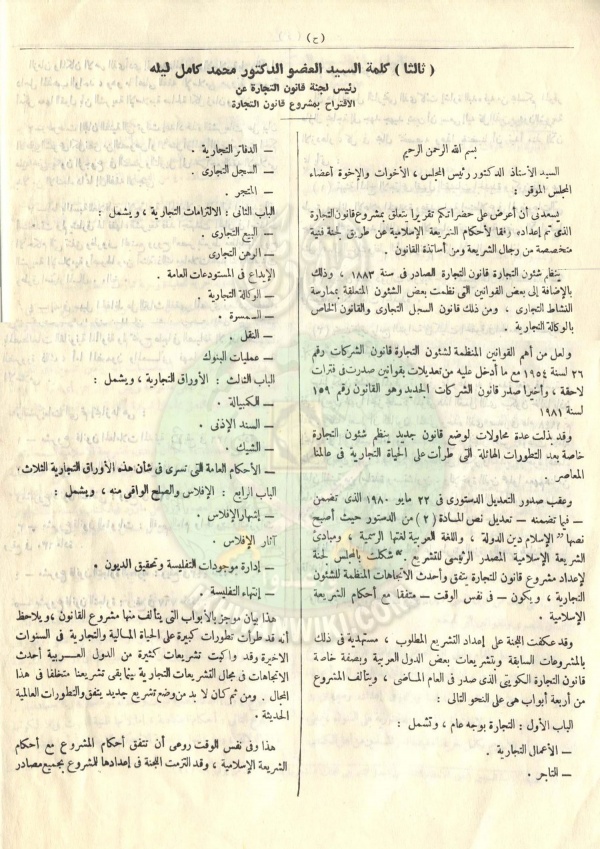 (ح)
( ثالثا ) كلمة السيد العضو الدكتور محمد كامل ليله
رئيس لجنة قانون التجارة عن
الاقتراح بمشروع قانون التجارة
بسم الله الرحمن الرحيم
السيد الأستاذ الدكتور رئيس المجلس ، الأخوات والإخوة أعضاء
المجلس الموقر :
يسعدنى أن أعرض على حضراتكم تقريرا يتعلق بمشروع قانون التجارة
الذى تم إعداده وفقا لأحكام الشريعة الإسلامية عن طريق لجنة فنية
متخصصة من رجال الشريعة ومن أساتذة القانون .
ينظم شئون التجارة قانون التجارة الصادر فى سنة ١٨٨٣ ، وذلك
بالإضافة إلى بعض القوانين التى نظمت بعض الشئون المتعلقة بممارسة
النشاط التجارى ، ومن ذلك قانون السجل التجارى والقانون الخاص
بالوكالة التجارية .
ولعل من أهم القوانين المنظمة لشئون التجارة قانون الشركات رقم
٢٦ لسنة ١٩٥٤ مع ما أدخل عليه من تعديلات بقوانين صدرت فى فترات
لاحقة ، وأخيرا صدر قانون الشركات الجديد وهو القانون رقم ١٥٩
لسنة ١٩٨١
وقد بذلت عدة محاولات لوضع قانون جديد ينظم شئون التجارة
خاصة بعد التطورات الهائلة التى طرأت على الحياة التجارية فى عالمنا
المعاصر .
وعقب صدور التعديل الدستورى فى ٢٢ مايو ١٩٨٠ الذى تضمن
– فيما تضمنه – تعديل نص المادة (٢) من الدستور حيث أصبح
نصها "الإسلام دين الدولة ، واللغة العربية لغتها الرسمية ، ومبادئ
الشريعة الإسلامية المصدر الرئيسى للتشريع" شكلت بالمجلس لجنة
لإعداد مشروع قانون للتجارة يتمشى وأحدث الاتجاهات المنظمة للشئون
التجارية ، ويكون – فى نفس الوقت – متفقا مع أحكام الشريعة
الإسلامية .
وقد عكفت اللجنة على إعداد التشريع المطلوب ، مستهدية فى ذلك
بالمشروعات السابقة وبتشريعات بعض الدول العربية وبصفة خاصة
قانون التجارة الكويتى الذى صدر فى العام الماضى ، ويتألف المشروع
من أربعة أبواب هى على النحو التالى :
الباب الأول : التجارة بوجه عام ، وتشمل :
– الأعمال التجارية .
– التاجر .
– الدفاتر التجارية .
– السجل التجارى .
– المتجر .
الباب الثانى : الالتزامات التجارية ، ويشمل :
– البيع التجارى .
– الرهن التجارى
– الإيداع فى المستودعات العامة .
– الوكالة التجارية .
– السمسرة .
– النقل .
– عمليات البنوك
الباب الثالث : الأوراق التجارية ، ويشمل :
– الكمبيالة .
– السند الإذنى .
– الشيك .
– الأحكام العامة التى تسرى فى شأن هذه الأوراق التجارية الثلاث .
الباب الرابع : الإفلاس والصلح الواقى منه ، ويشمل :
– إشهار الإفلاس .
آثار الإفلاس .
– إدارة موجودات التفليسة وتحقيق الديون .
– إنتهاء التفليسة .
هذا بيان موجز بالأبواب التى يتألف منها مشروع القانون ، ويلاحظ
أنه قد طرأت تطورات كبيرة على الحياة المالية والتجارية فى السنوات
الأخيرة وقد واكبت تشريعات كثيرة من الدول العربية أحدث
الاتجاهات فى مجال التشريعات التجارية بينما بقى تشريعنا متخلفا فى هذا
المجال . ومن ثم كان لا بد من وضع تشريع جديد يتفق والتطورات العالمية
الحديثة .
هذا وفى نفس الوقت روعى أن تتفق أحكام المشروع مع أحكام
الشريعة الإسلامية ، وقد التزمت اللجنة فى إعدادها للمشروع بجميع مصادر